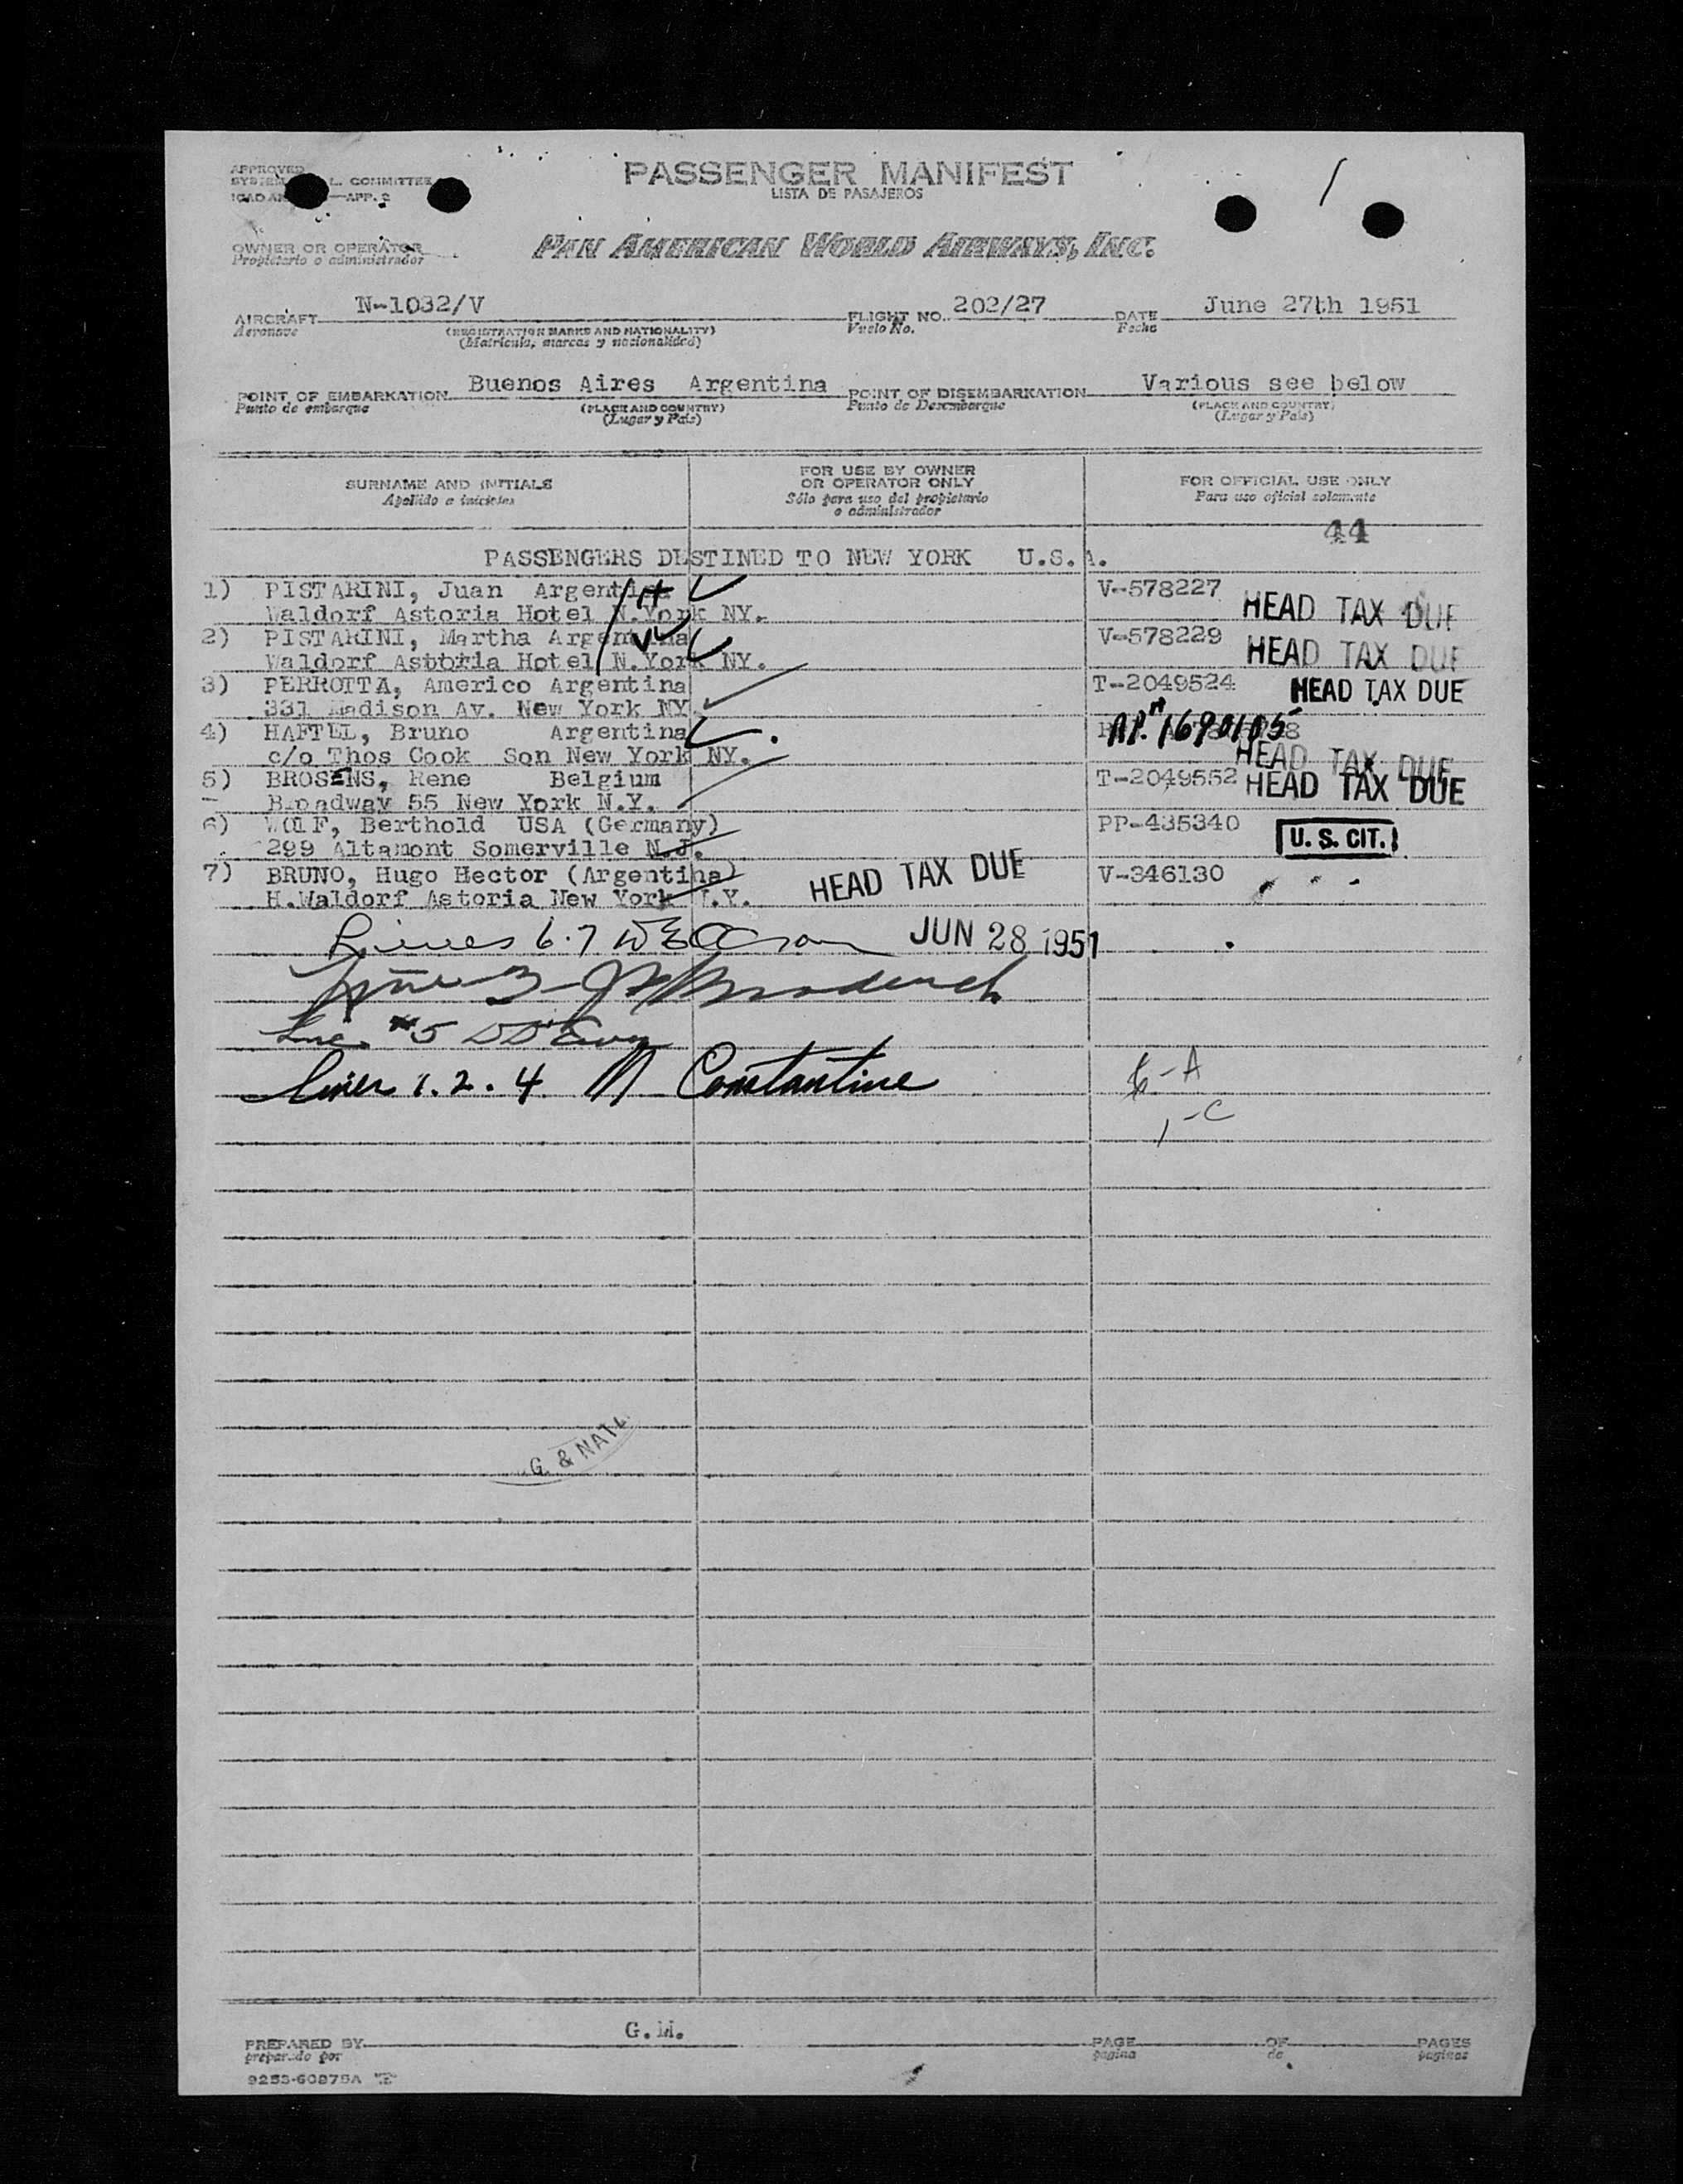 APPROVED
L. COMMITTEE
APP. 2
PASSENGER MANIFEST
LISTA DE PASAJEROS
OWNER OR OPERATOR
Propietario o administrador
PAN AMERICAN WORLD AIRWAYS, INC.
AIRCRAFT N-1032/V FLIGHT NO. 202/27 DATE June 27th 1951
Aeronave (REGISTRATION MARKS AND NATIONALITY) Vuelo No. Fecha
(Matricula, marcas y nacionalidad)
POINT OF EMBARKATION Buenos Aires Argentina POINT OF DISEMBARKATION Various see below
Punto de embarque (PLACE AND COUNTRY) Punto de Desembarque (PLACE AND COUNTRY)
(Lugar y País) (Lugar y País)
SURNAME AND INITIALS FOR USE BY OWNER OR OPERATOR ONLY FOR OFFICIAL USE ONLY
Apellido e iniciales Sólo para uso del propietario o administrador Para uso oficial solamente
44
PASSENGERS DESTINED TO NEW YORK U.S.A.
1) PISTARINI, Juan Argentina V-578227 HEAD TAX DUE
Waldorf Astoria Hotel N.York NY.
2) PISTARINI, Martha Argentina V-578229 HEAD TAX DUE
Waldorf Astoria Hotel N.York NY.
3) PERROTTA, Americo Argentina T-2049524 HEAD TAX DUE
331 Madison Av. New York NY.
4) HAFTEL, Bruno Argentina 1690105
c/o Thos Cook Son New York NY. HEAD TAX DUE
5) BROSENS, Rene Belgium T-2049552 HEAD TAX DUE
Broadway 55 New York N.Y.
6) WOLF, Berthold USA (Germany) PP-435340 U. S. CIT.
299 Altamont Somerville N.J.
7) BRUNO, Hugo Hector (Argentina) HEAD TAX DUE V-346130
H.Waldorf Astoria New York N.Y.
Lines 6.7 JUN 28 1951
Line 3
Line #5
Lines 1.2.4. M Constantine
6-A
1-C
G. & NATL
PREPARED BY G.M. PAGE OF PAGES
preparado por pagina de paginas
9253-60875A